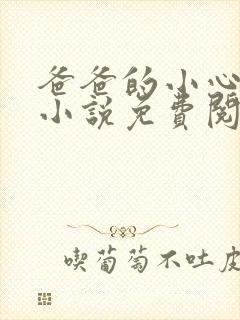 爸爸的小心
小說免費閱
喫葡萄不吐皮